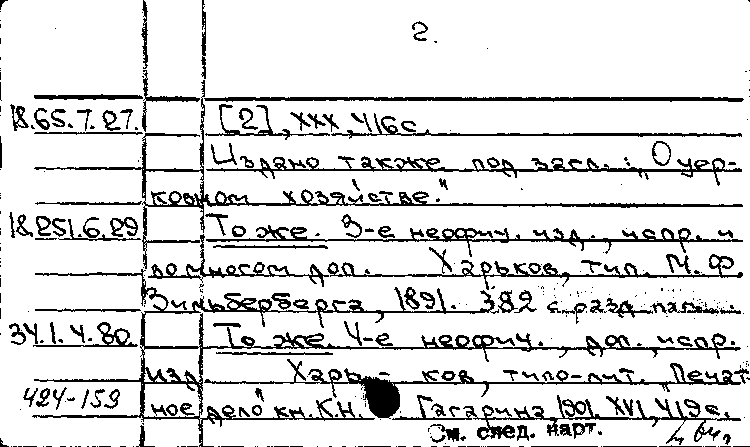 2.
18.65.7.27. [2], XXX, 416 с.
Издано также под загл.: „О цер-
ковном хозяйстве."
18.251.6.29 То же. 3-е неофиц. изд., испр. и
во многом доп. Харьков, тип. М. Ф.
Зильберберга, 1891. 382 с разд. паг.
34.1.4.80. То же. 4-е неофиц., доп., испр.
изд. Харь-ков, типо-лит. „Печат
424-159 ное дело" кн. К.Н. Гагарина, 1901. XVI, 419 с.
См. след. карт.